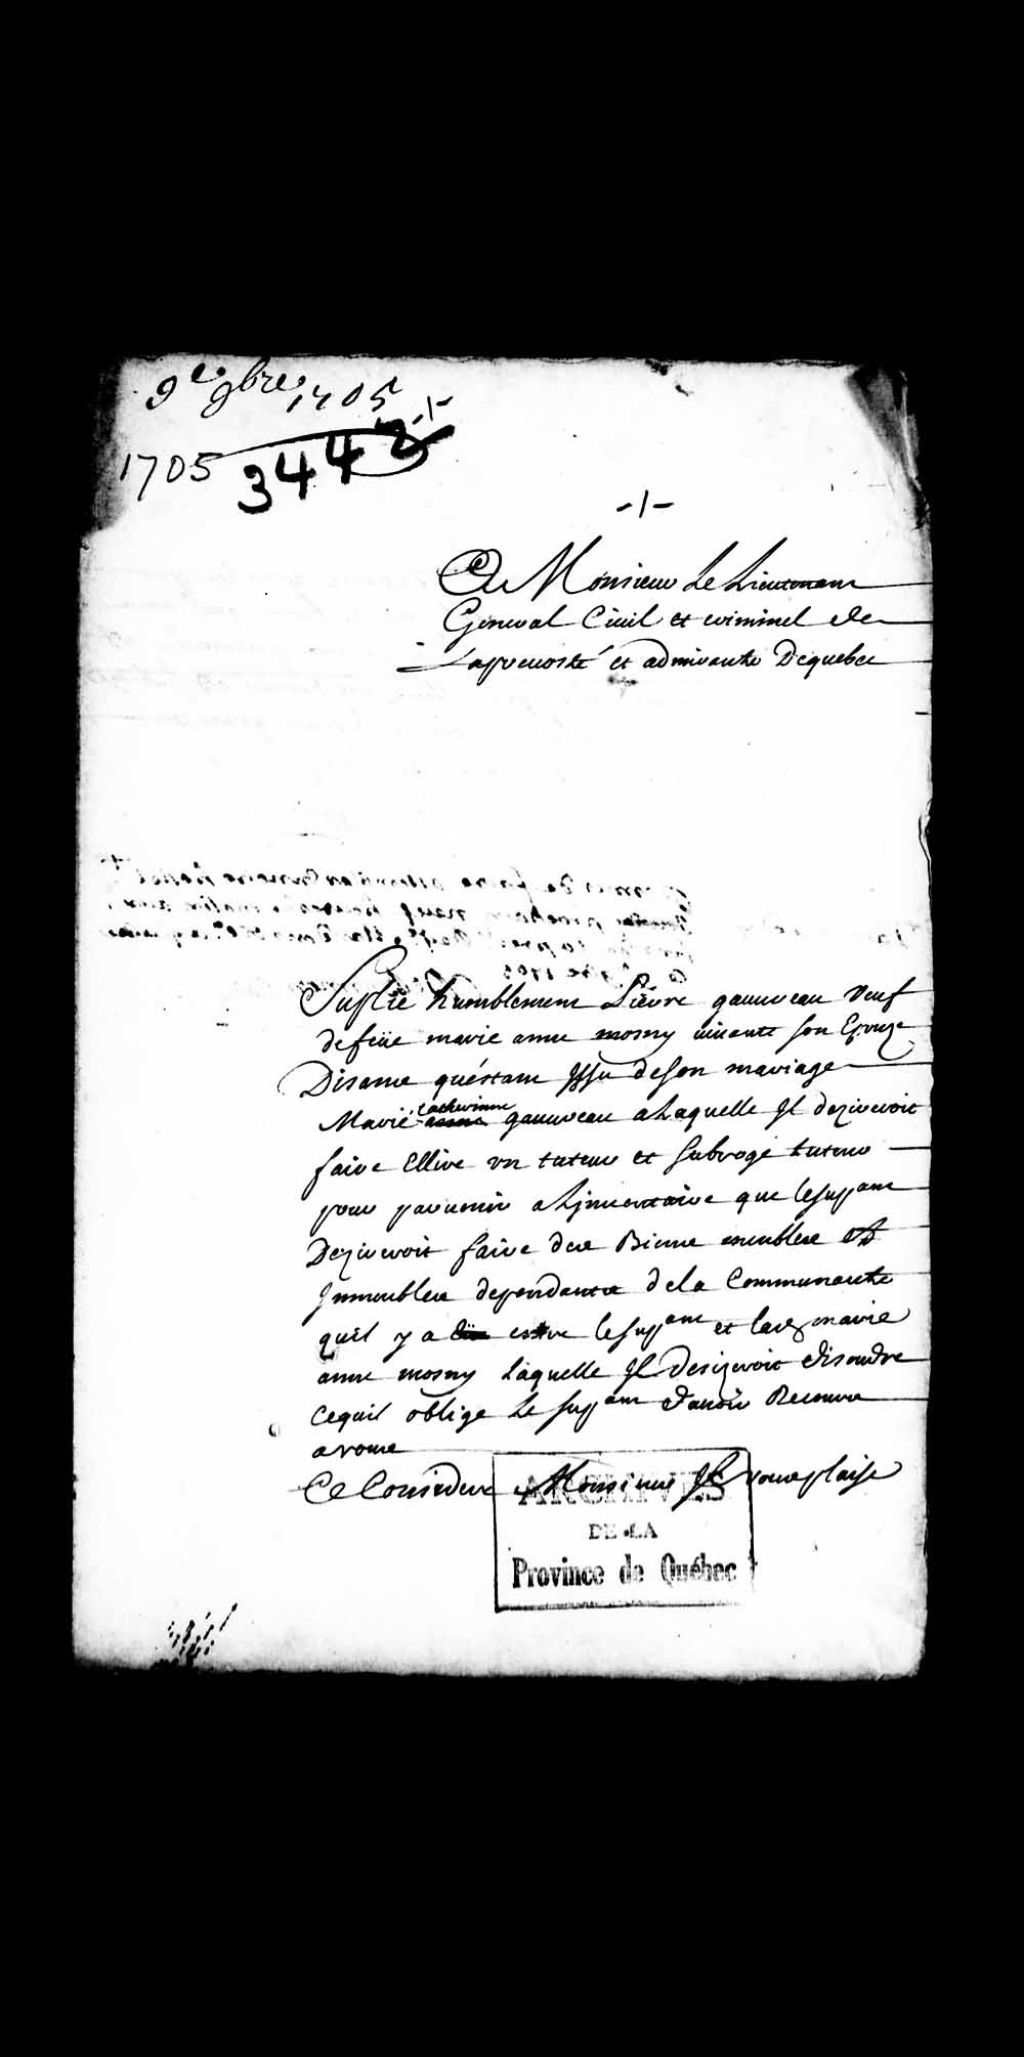 9e 9bre 1705
-/-
1705 344
-/-
A Monsieur Le Lieutenant
General Civil et criminel de
La prevosté et admirauté De quebec
Suplie humblement Pierre gauvreau veuf
de feüe marie anne mosny vivante son Epouze
Disant qu'éstant Issu de son mariage
Marie catherinne gauvreau a Laquelle Il dezireroit
faire Ellire vn tuteur et subrogé tuteur
pour parvenir a L'jnventaire que le supant
Dezireroit faire des Biens meubles et
Jmmeubles dependants de la Communauté
quil y a entre le supant et lad marie
anne mosny Laquelle Il desireroit disoudre
Ce quil oblige Le supant d'avoir Recours
a vous
Ce Consideré Monsieur Il vous plaise
ARCHIVES
DE LA
Province de Québec